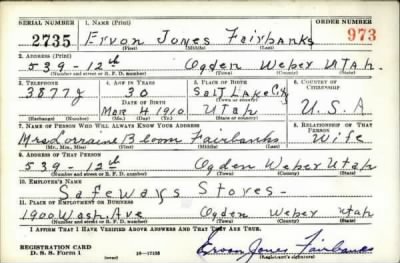 SERIAL NUMBER 1. NAME (Print) ORDER NUMBER
2735 Ervon Jones Fairbanks 973
(First) (Middle) (Last)
2. ADDRESS (Print)
539 - 12th Ogden Weber Utah.
(Number and street or R. F. D. number) (Town) (County) (State)
3. TELEPHONE 4. AGE IN YEARS 5. PLACE OF BIRTH 6. COUNTRY OF CITIZENSHIP
3877J 30 Salt Lake City
DATE OF BIRTH (Town or county)
Mar 4 1910 Utah U.S.A
(Exchange) (Number) (Mo.) (Day) (Yr.) (State or country)
7. NAME OF PERSON WHO WILL ALWAYS KNOW YOUR ADDRESS 8. RELATIONSHIP OF THAT PERSON
Mrs Lorraine Bloom Fairbanks Wife
(Mr., Mrs., Miss) (First) (Middle) (Last)
9. ADDRESS OF THAT PERSON
539 - 12th Ogden Weber Utah
(Number and street or R. F. D. number) (Town) (County) (State)
10. EMPLOYER'S NAME
Safeways Stores -
11. PLACE OF EMPLOYMENT OR BUSINESS
1900 Wash. Ave Ogden Weber Utah
(Number and street or R. F. D. number) (Town) (County) (State)
I AFFIRM THAT I HAVE VERIFIED ABOVE ANSWERS AND THAT THEY ARE TRUE.
REGISTRATION CARD
D. S. S. Form 1 (over) 16-17105 Ervon Jones Fairbanks
(Registrant's signature)